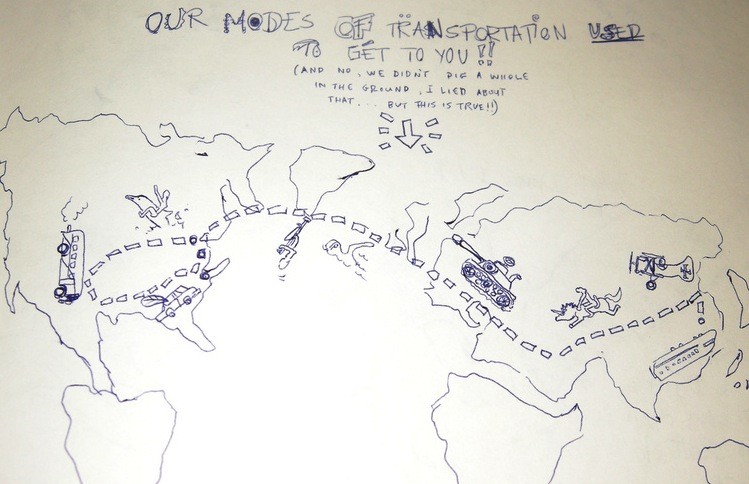 OUR MODES OF TRANSPORTATION USED
TO GET TO YOU!!
(AND NO, WE DIDN'T DIG A WHOLE
IN THE GROUND, I LIED ABOUT
THAT... BUT THIS IS TRUE!!)